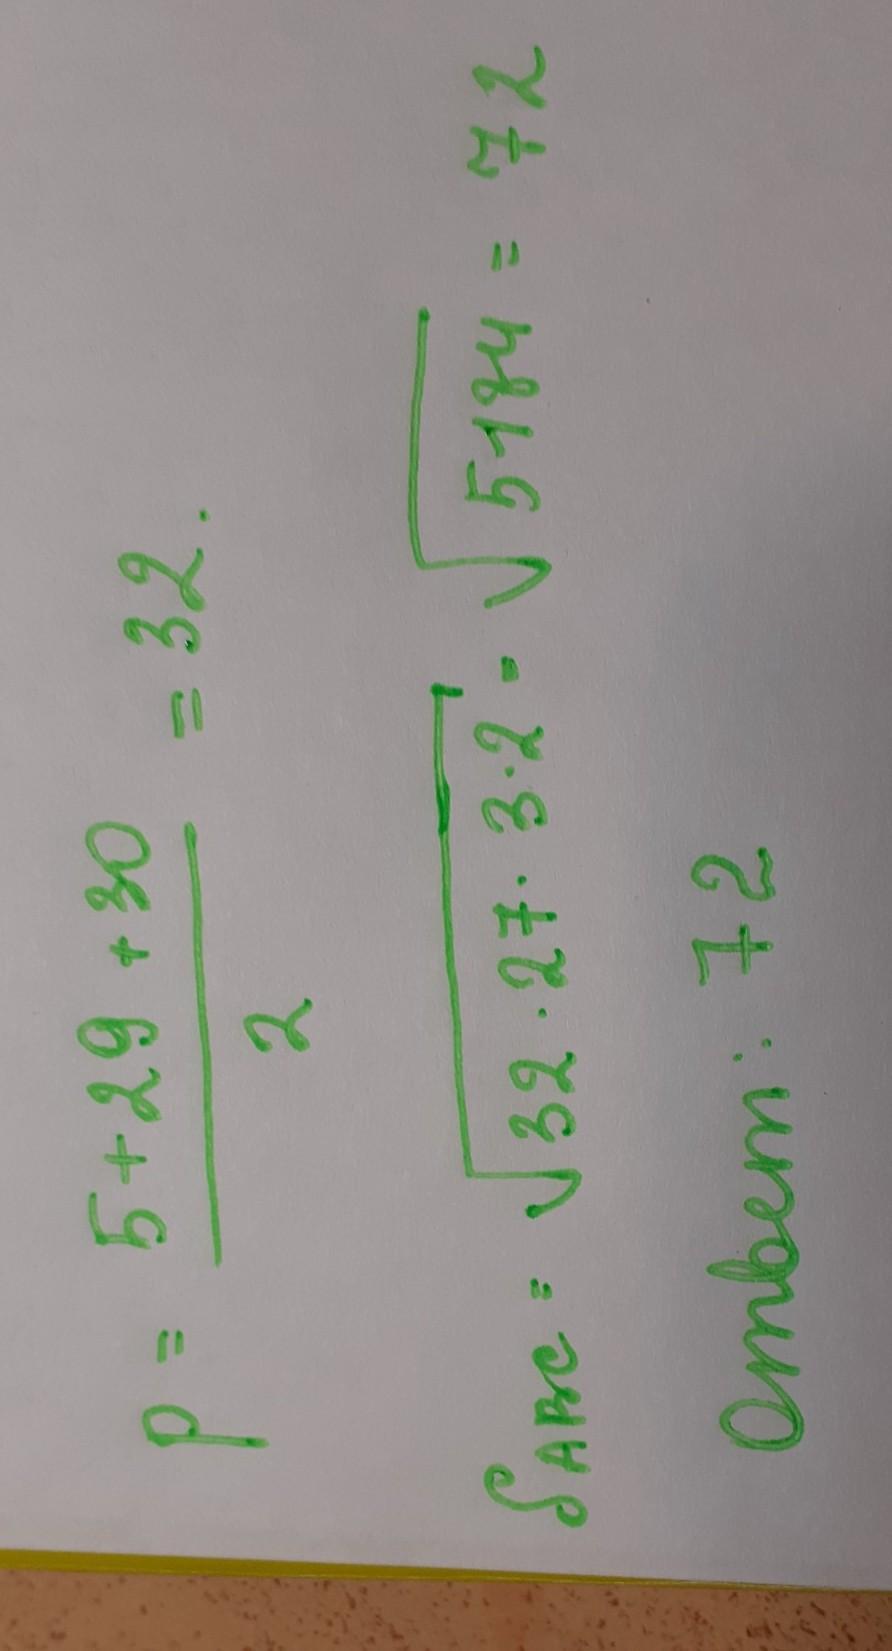 p = (5+29+30)/2 = 32.
S ABC = √(32·27·3·2) = √5184 = 72
Ответ: 72